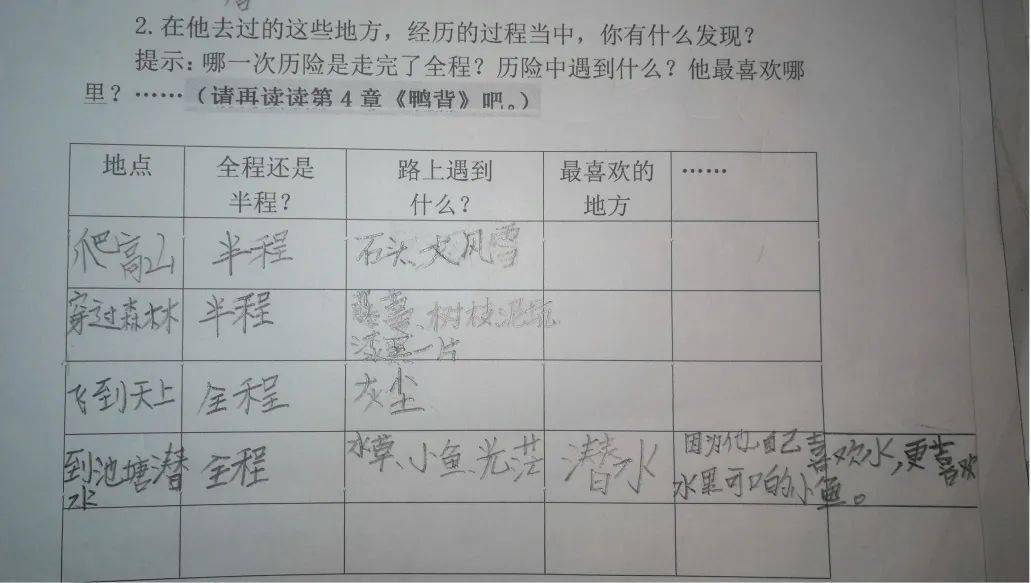 2. 在他去过的这些地方，经历的过程当中，你有什么发现？
提示：哪一次历险是走完了全程？历险中遇到什么？他最喜欢哪
里？……（请再读读第 4 章《鸭背》吧。）
地点 全程还是 路上遇到 最喜欢的 ……
半程？ 什么？ 地方
爬高山 半程 石头、大风雪
穿过森林 半程 、树枝泥坑
漆黑一片
飞到天上 全程 灰尘
到池塘潜 全程 水草、小鱼、光芒 潜水 因为他自己喜欢水，更喜欢
水 水里可口的小鱼。